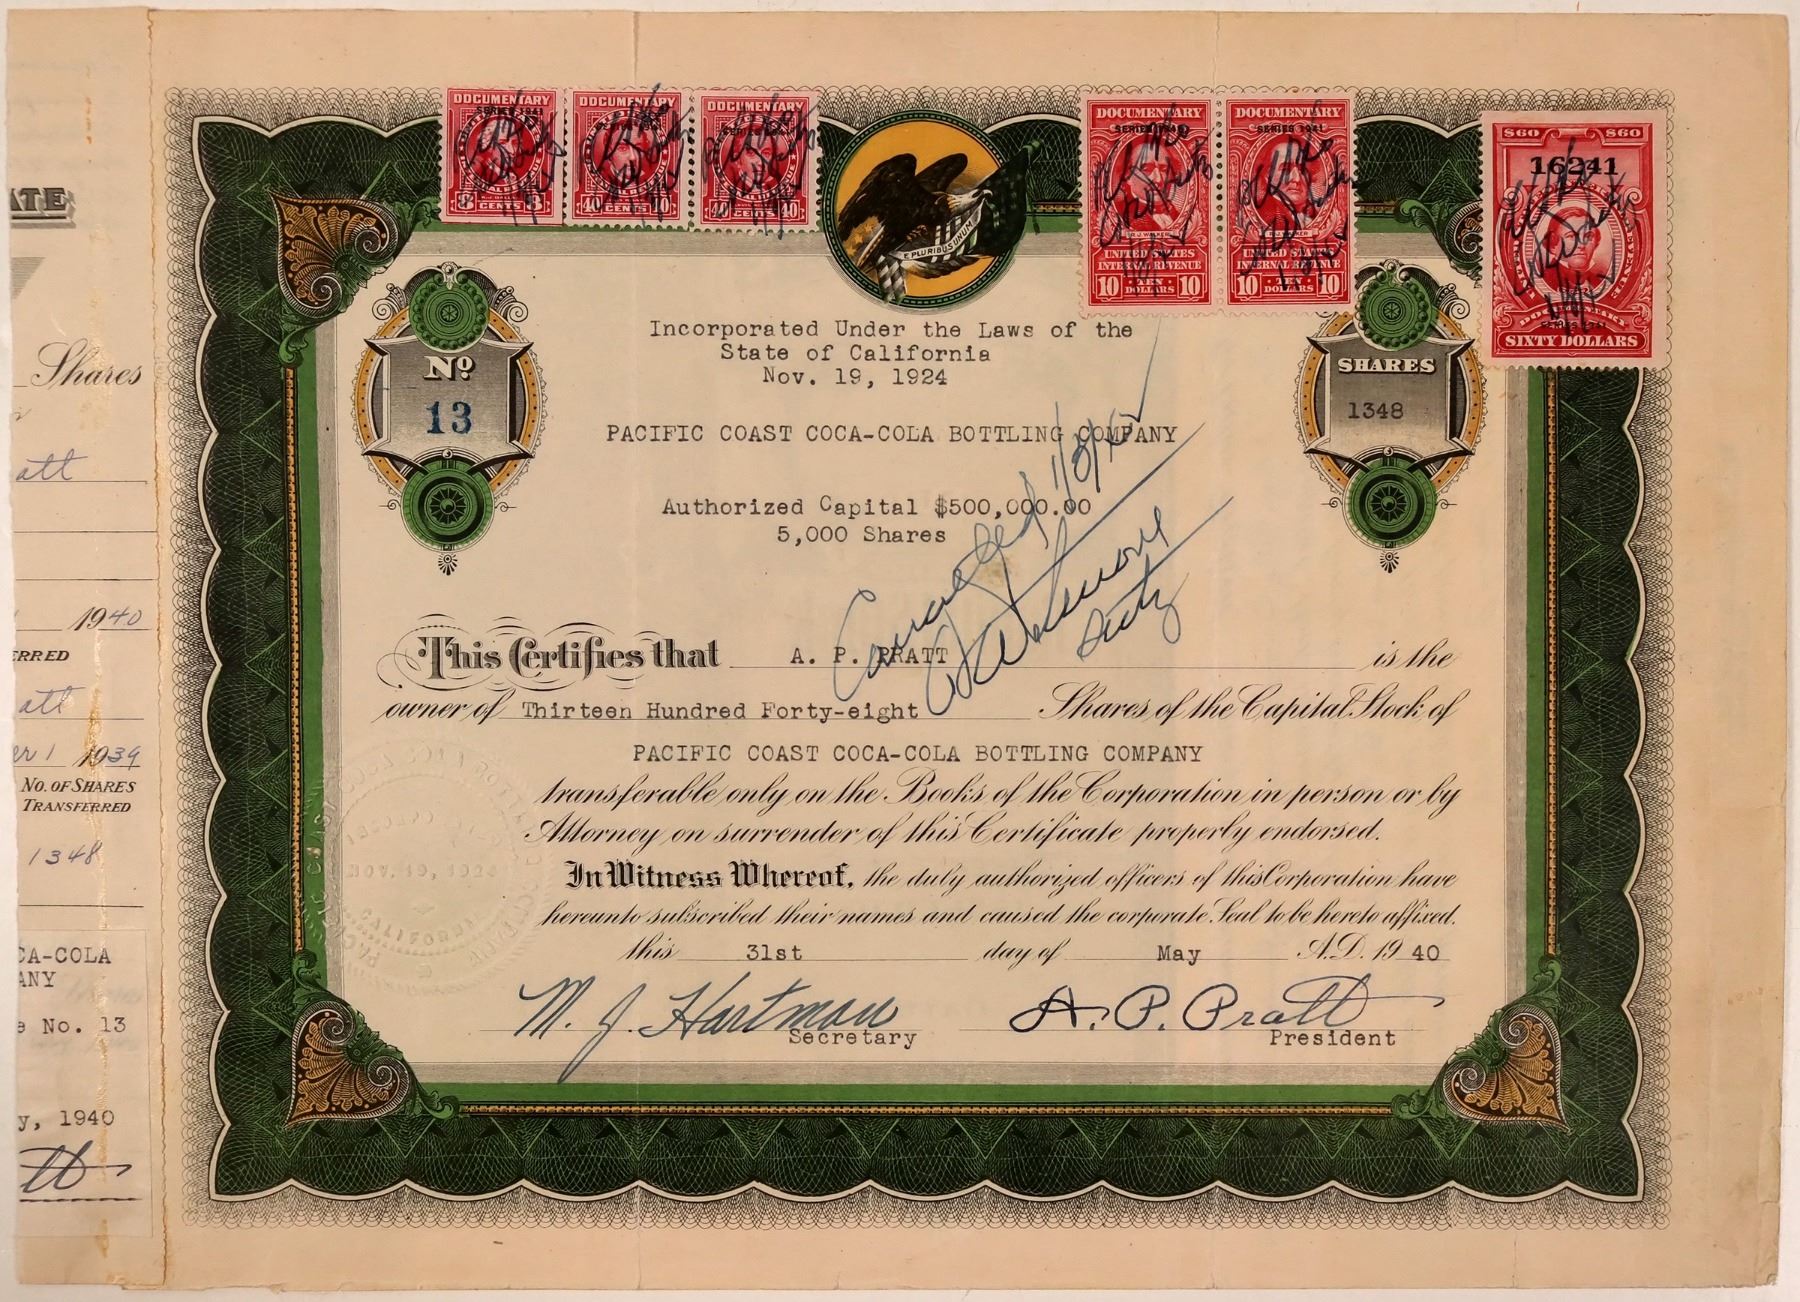 ATE
Shares
att
1940
ERRED
att
er 1 1939
NO. OF SHARES
TRANSFERRED
1348
CA-COLA
ANY
e No. 13
y, 1940
tt
DOCUMENTARY
SERIES 1941
8 CENTS 8
DOCUMENTARY
40 CENTS 40
DOCUMENTARY
40 CENTS 40
E PLURIBUS UNUM
DOCUMENTARY
SERIES 1941
R. J. WALKER
UNITED STATES
INTERNAL REVENUE
10 TEN DOLLARS 10
DOCUMENTARY
SERIES 1941
UNITED STATES
INTERNAL REVENUE
10 TEN DOLLARS 10
$60 $60
16241
DOCUMENTARY
SERIES 1941
SIXTY DOLLARS
Incorporated Under the Laws of the
State of California
Nov. 19, 1924
No
13
SHARES
1348
PACIFIC COAST COCA-COLA BOTTLING COMPANY
Authorized Capital $500,000.00
5,000 Shares
Cancelled 1/3/42
This Certifies that A. P. PRATT is the
owner of Thirteen Hundred Forty-eight Shares of the Capital Stock of
PACIFIC COAST COCA-COLA BOTTLING COMPANY
transferable only on the Books of the Corporation in person or by
Attorney on surrender of this Certificate properly endorsed.
In Witness Whereof, the duly authorized officers of this Corporation have
hereunto subscribed their names and caused the corporate Seal to be hereto affixed.
this 31st day of May A.D. 1940
NOV. 19, 1924
M. J. Hartman
Secretary
A. P. Pratt
President